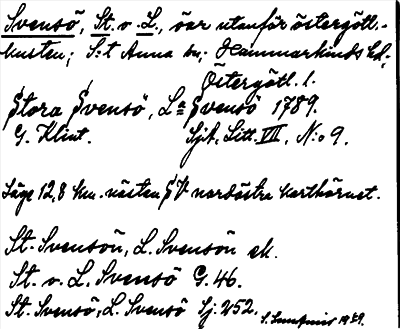 Svensö, St. o. L., öar utanför östergötl.-
kusten; S:t Anna sn; Hammarkinds hd;
Östergötl. l.
Stora Svensö, La Svensö 1789.
G. Klint. Sjk. Litt. VII. N:o 9.
Läge 12,8 km. nästan S V nordöstra karthörnet.
St. Svensön, L. Svensön ek.
St. o. L. Svensö G. 46.
St. Svensö, L. Svensö Sj. 252.
S. 19